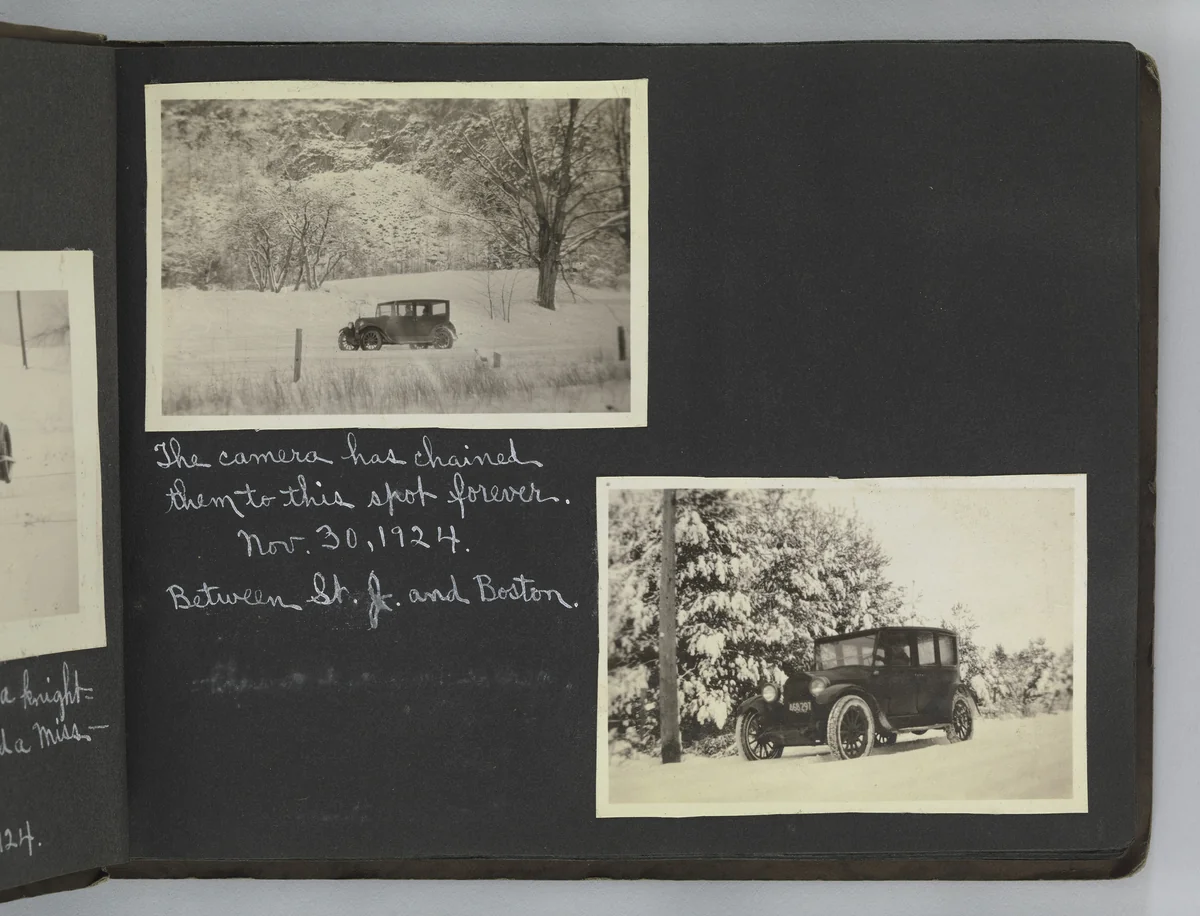 The camera has chained
them to this spot forever.
Nov. 30, 1924.
Between St. J. and Boston.
a knight-
da Miss—
124.